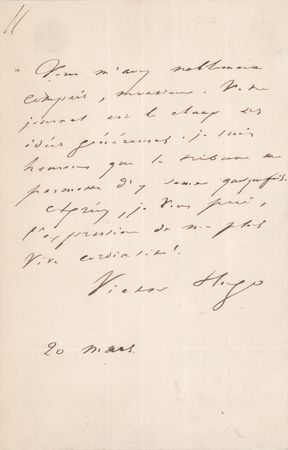 Vous m'avez noblement
compris, monsieur. Votre
journal est le champ des
idées généreuses. je suis
heureux que la tribune me
permette d'y semer quelquefois.
Agréez, je vous prie,
l'expression de ma plus
vive cordialité!
Victor Hugo
20 mars.